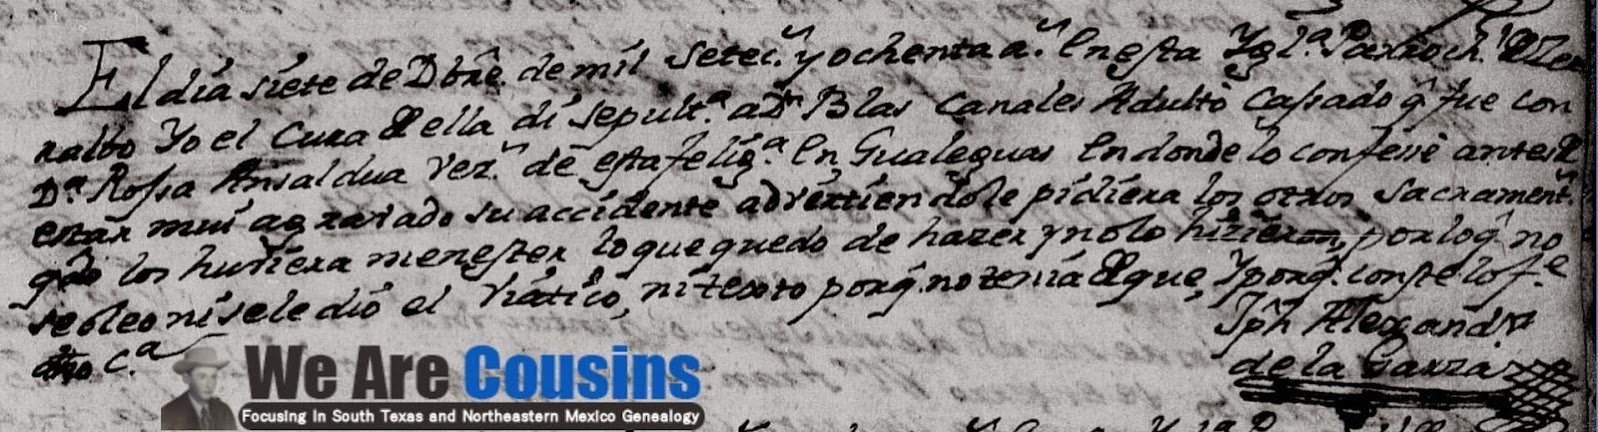 El dia siete de Dbre. de mil setec.s y ochenta a.s en esta Ygl.a Parroch.l de Zer
ralbo Yo el Cura de ella di sepult.a a Dn Blas Canales Adulto Cassado q fue con
D.a Rossa Ansaldua vez.n de esta felig.a en Gualeguas en donde lo confesé antes de
estar mui agravado su accidente advirtiendole pidiera los otros Sacrament.s
qdo los huviera menester lo que quedo de hazer y no lo hizieron, por lo q no
se oleo ni se le dió el Viatico, ni testo porq. no tenia de que, Y porq. conste lo f.e
dho C.a
Jph Alexandr
de la Garza
We Are Cousins
Focusing in South Texas and Northeastern Mexico Genealogy